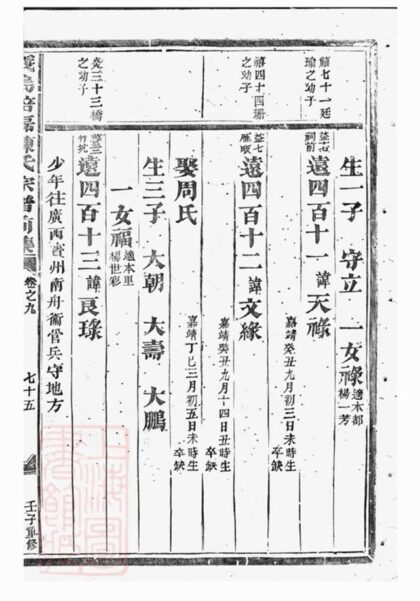 生一子 守立 一女祿 適本都楊一芳
禧七十一廷瑜之幼子
遠四百十一 諱天祿
嘉靖癸丑九月初三日未時生 卒缺
禧四十四珊之幼子
遠四百十二 諱文緣
嘉靖癸丑九月十四日丑時生 卒缺
娶周氏
嘉靖丁巳三月初五日未時生 卒缺
生三子 大朝 大壽 大鵬
一女福 適本里楊世彩
之幼子
遠四百十三 諱良琭
少年往廣西賓州南舟衛官兵守地方
氏宗譜前集 卷之九 七十五 壬子重修